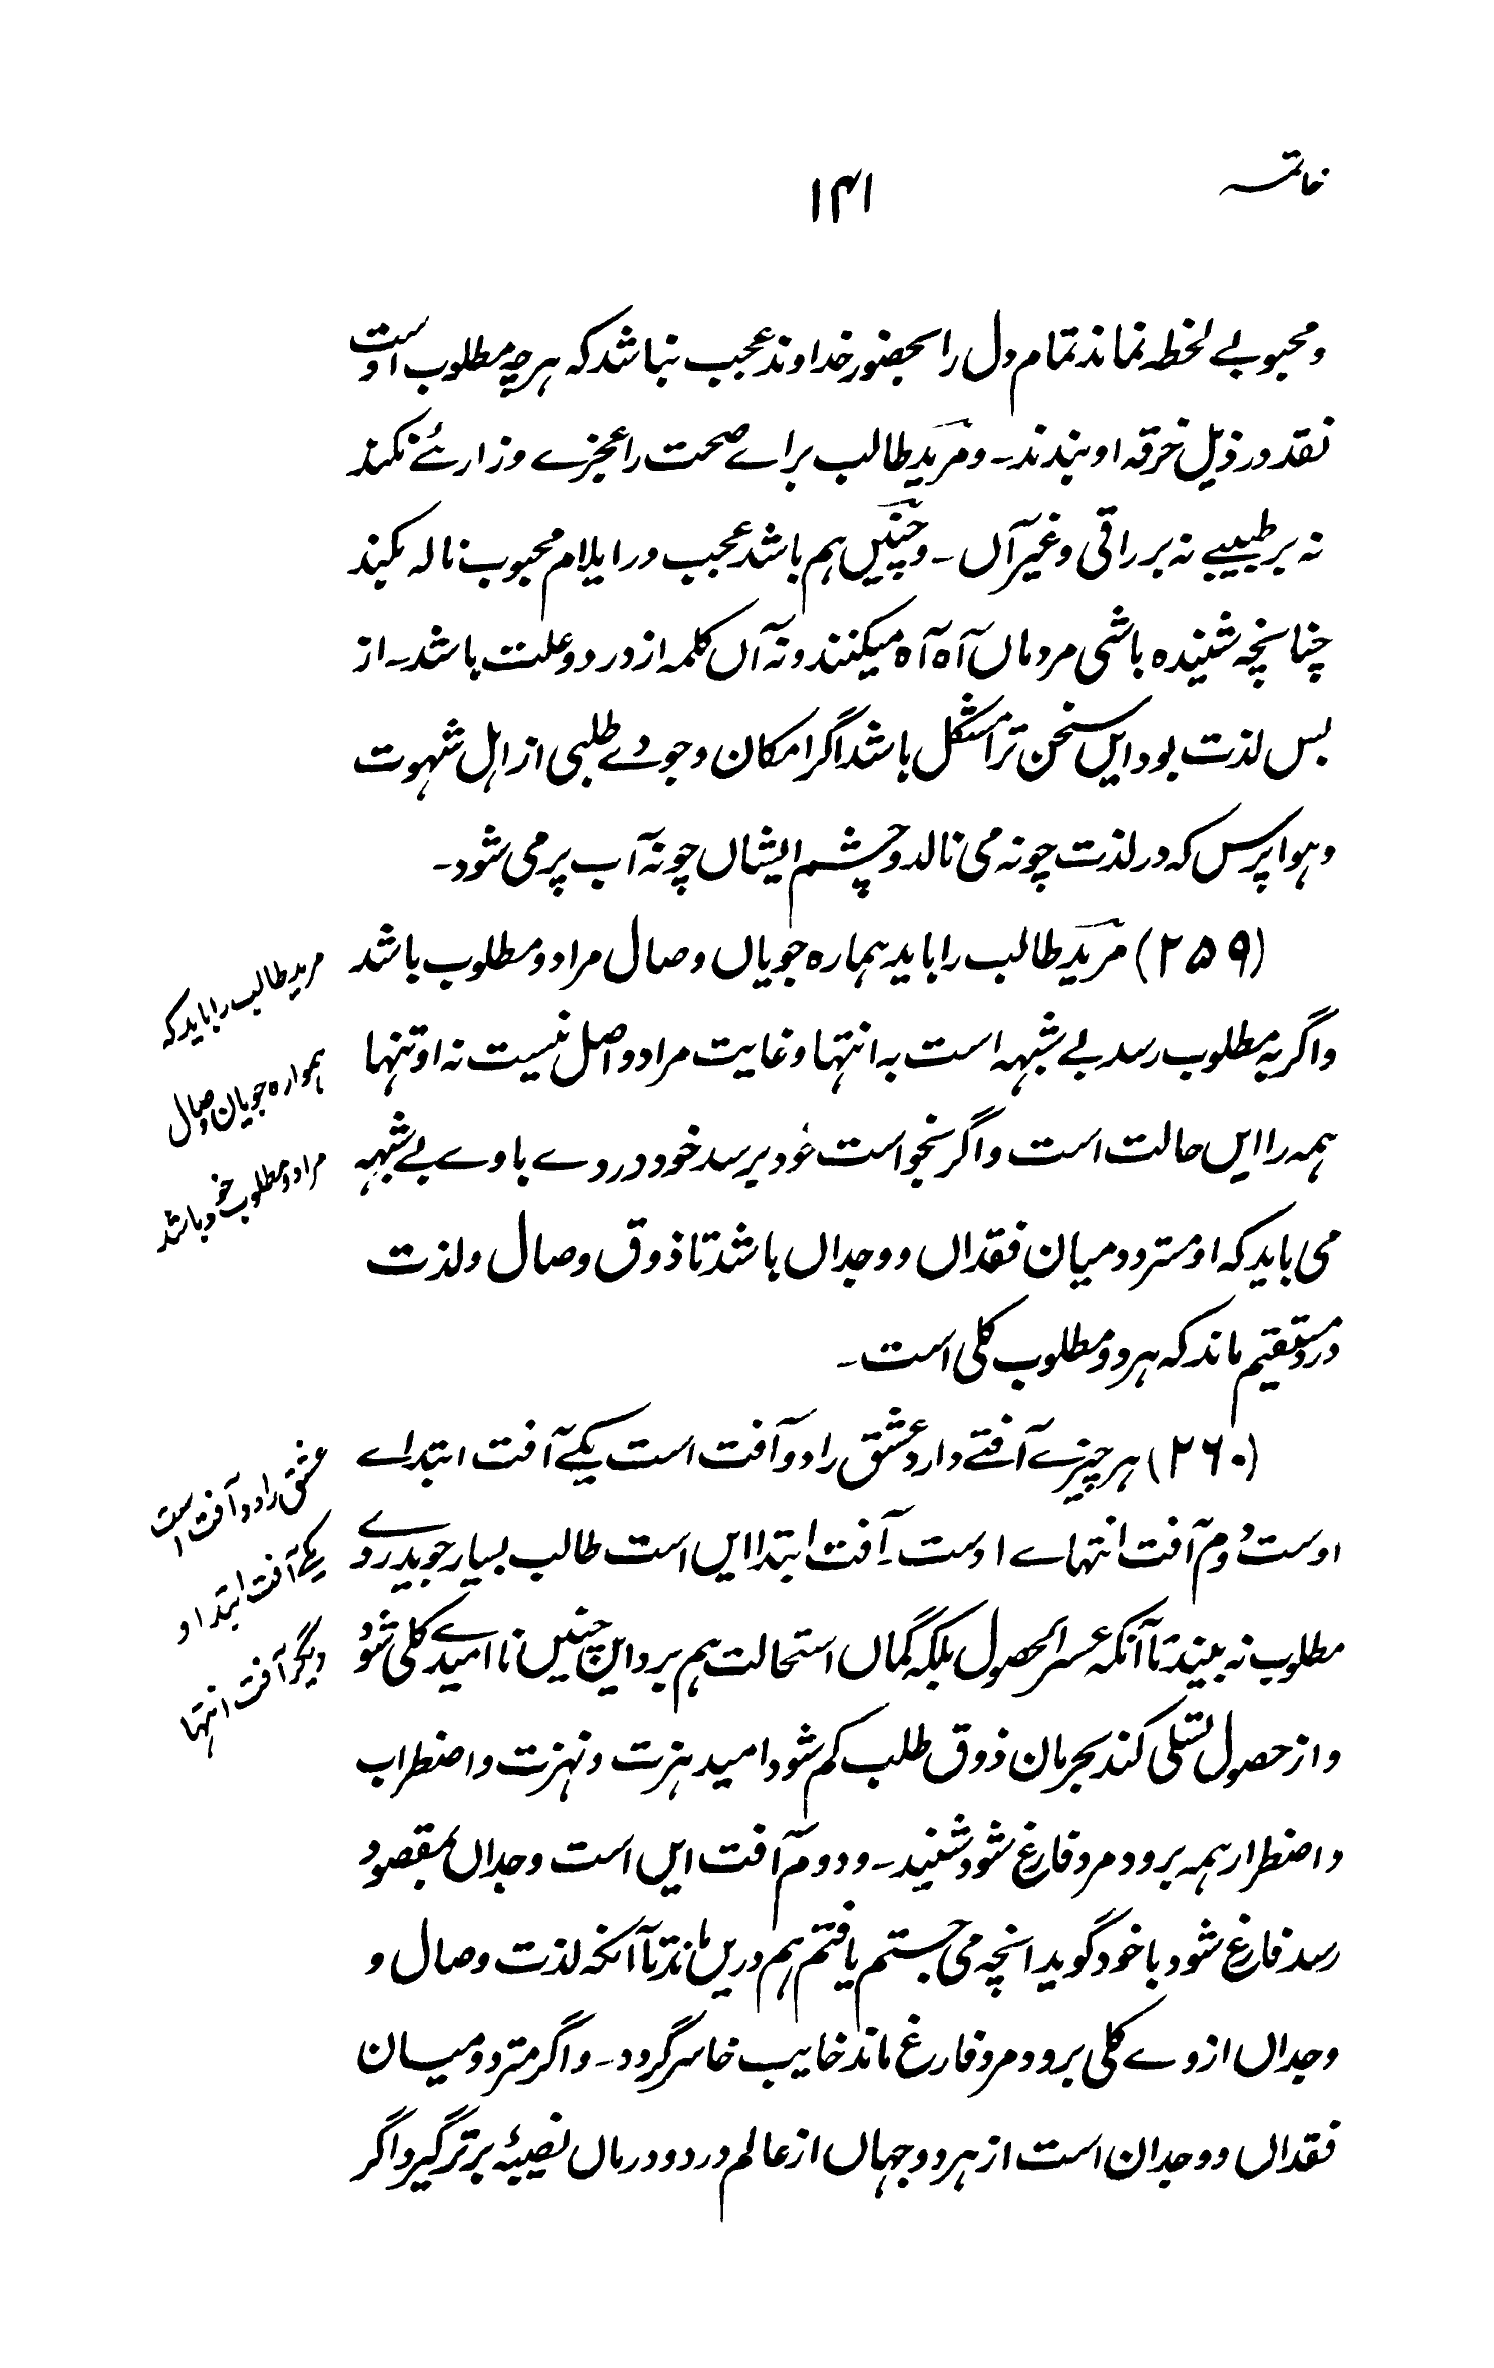 خاتمہ
۱۴۱
و محبوبے لخطہ نماند تمام دل را بحضور خداوند عجب نباشد کہ ہرچہ مطلوب اوست
نقد در ذیل خرقہ او بندند۔ و مرید طالب براے صحت را عجزے و زارئے نکند
نہ بر طبیبے نہ بر راقی و غیر آں۔ و چنیں ہم باشد عجب در ایلام محبوب نالہ بکند
چنانچہ شنیدہ باشی مردماں آہ آہ میکنند و نہ آں کلمہ از درد و علت باشد۔ از
بس لذت بود ایں سخن ترا مشکل باشد اگر امکان وجودے طلبی از اہل شہوت
و ہوا پرس کہ در لذت چونہ می نالد و چشم ایشاں چونہ آب پر می شود۔
(۲۵۹) مرید طالب را باید ہمارہ جویاں وصال مراد و مطلوب باشد
و اگر بہ مطلوب رسد بے شبہہ است بہ انتہا و غایت مراد واصل نیست نہ او تنہا
ہمہ را ایں حالت است و اگر نخواست خود برسد خود در وے با وے بے شبہہ
می باید کہ او متردد میان فقداں و وجداں باشد تا ذوق وصال و لذت
درد مستقیم ماند کہ ہر دو مطلوب کلی است۔
مرید طالب را باید کہ
ہموارہ جویان وصال
مراد و مطلوب خود باشد
(۲۶۰) ہر چیزے آفتے دارد عشق را دو آفت است یکے آفت ابتداے
اوست دوم آفت انتہاے اوست۔ آفت ابتدا ایں است طالب بسیار جوید روے
مطلوب نہ بیند تا آنکہ عسر الحصول بلکہ گماں استحالت ہم برد ایں چنیں ناامیدے کلی شود
و از حصول تسلی کند بحرمان ذوق طلب کم شود امید ہزت و نہزت و اضطراب
و اضطرار ہمہ برود مرد فارغ شود شنید۔ و دوم آفت ایں است وجداں بمقصود
رسد فارغ شود با خود گوید انچہ می جستم یافتم ہم دریں ماند تا آنکہ لذت وصال و
وجداں از وے کلی برود مرد فارغ ماند خایب خاسر گردد۔ و اگر متردد میان
فقداں و وجدان است از ہر دو جہاں از عالم درد و درماں نصیبۂ برتر گیرد اگر
عشق را دو آفت است
یکے آفت ابتدا و
دیگر آفت انتہا